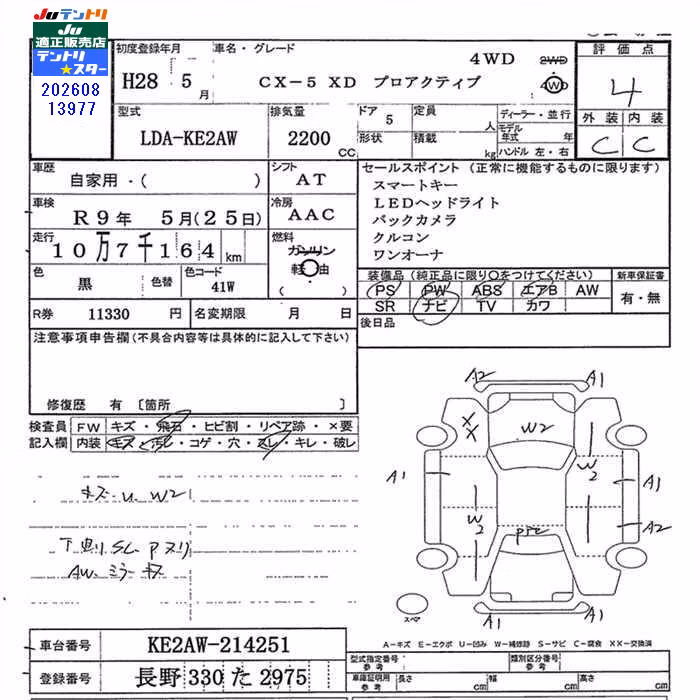 JUテントリ
JU
適正販売店
テントリ
★スター
202608
13977
初度登録年月
H28 5月
車名・グレード
CX-5 XD プロアクティブ
4WD
2WD
4WD
評価点
4
外装 内装
C C
型式
LDA-KE2AW
排気量
2200 CC
ドア 5
形状
定員 人
積載 kg
ディーラー・並行
モデル年式 年
ハンドル 左・右
車歴
自家用・( )
シフト
AT
車検
R9年 5月(25日)
冷房
AAC
走行
10万7千164 km
燃料
ガソリン
軽油
( )
色
黒
色替
色コード
41W
R券 11330 円
名変期限 月 日
セールスポイント(正常に機能するものに限ります)
スマートキー
LEDヘッドライト
バックカメラ
クルコン
ワンオーナ
装備品(純正品に限り○をつけてください)
新車保証書
PS PW ABS エアB AW
有・無
SR ナビ TV カワ
後日品
注意事項申告欄(不具合内容等は具体的に記入して下さい)
修復歴 有 〔箇所 〕
検査員 FW キズ・飛石・ヒビ割・リペア跡・×要
記入欄 内装 キズ・汚レ・コゲ・穴・スレ・キレ・破レ
キズ U W2
下廻りS
AW、ミラー キズ
A2 A1
XX W2 W2
A1 A1
W2 A2
A1 A1
スペア
A-キズ E-エクボ U-凹み W-補修跡 S-サビ C-腐食 XX-交換済
車台番号 KE2AW-214251
登録番号 長野 330 た 2975
型式指定番号 参考
類別区分番号 参考
車庫証明用 参考
長さ cm
幅 cm
高さ cm